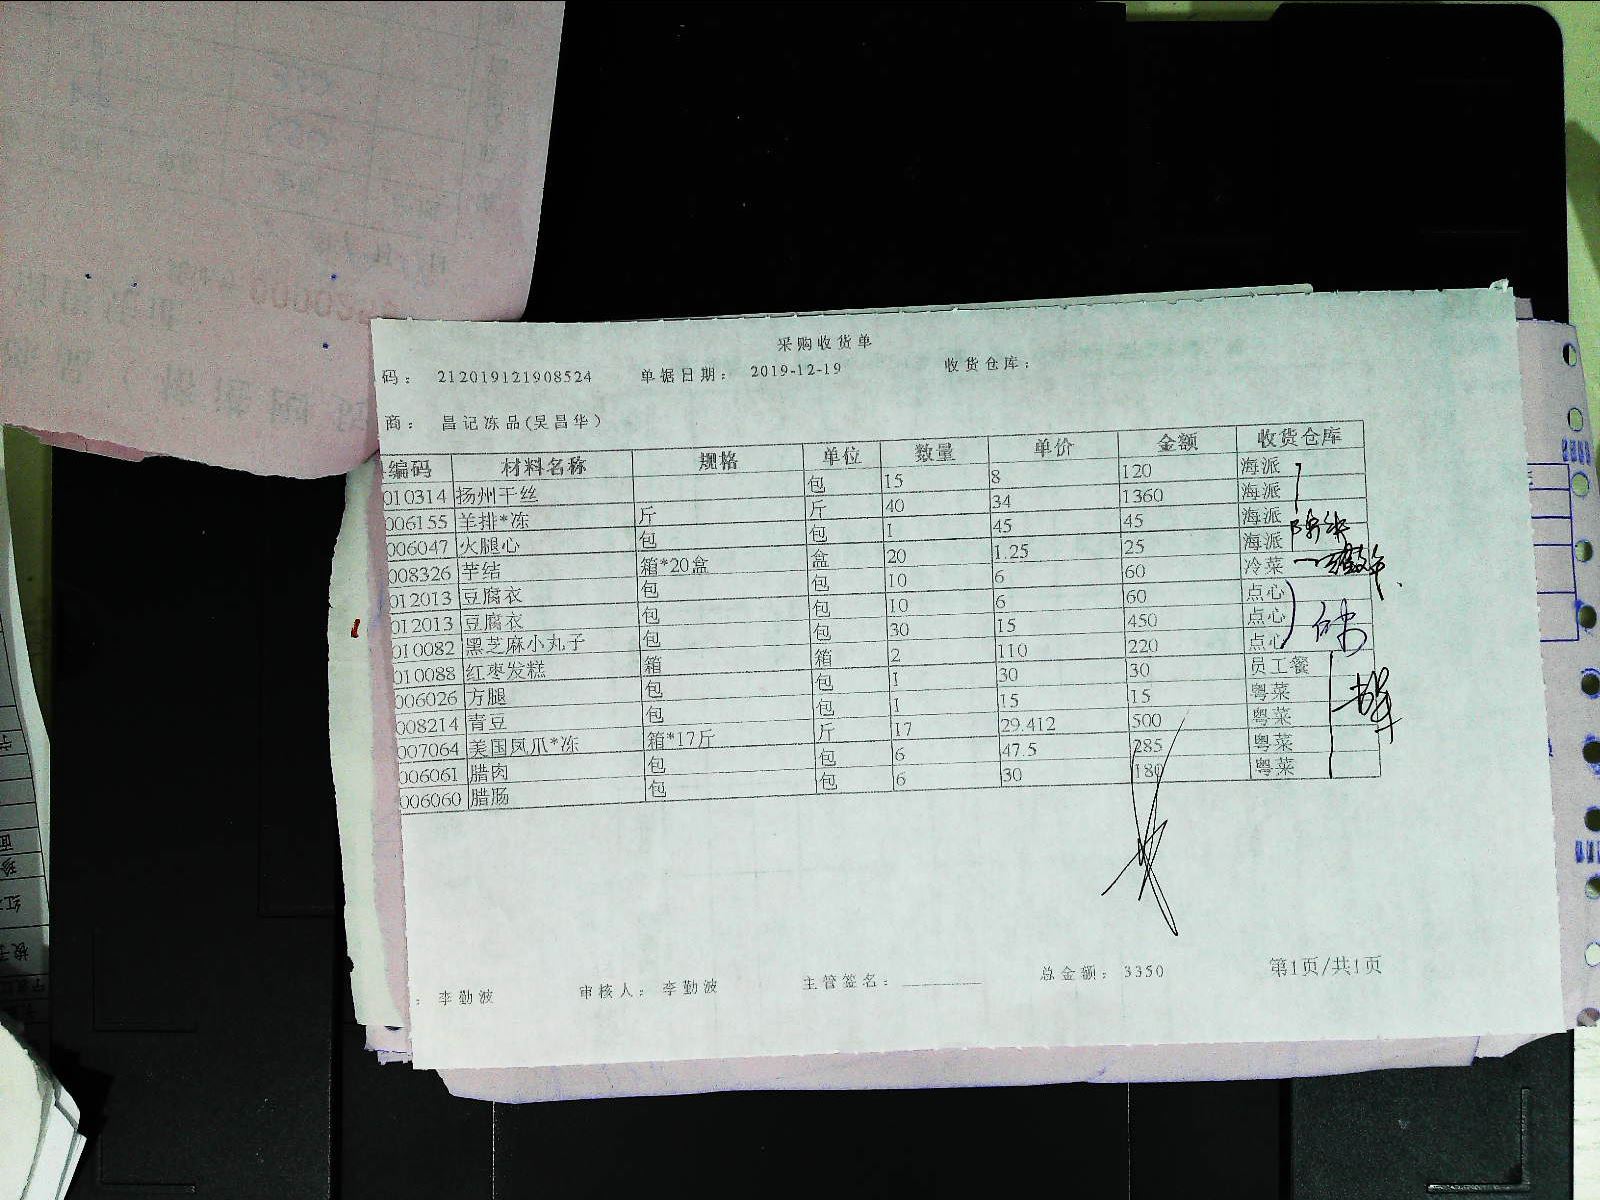 采购收货单
码： 212019121908524 单据日期： 2019-12-19 收货仓库：
商： 昌记冻品(吴昌华)
编码 材料名称 规格 单位 数量 单价 金额 收货仓库
010314 扬州干丝 包 15 8 120 海派
006155 羊排*冻 斤 斤 40 34 1360 海派
006047 火腿心 包 包 1 45 45 海派
008326 芋结 箱*20盒 盒 20 1.25 25 海派
012013 豆腐衣 包 包 10 6 60 冷菜
012013 豆腐衣 包 包 10 6 60 点心
010082 黑芝麻小丸子 包 包 30 15 450 点心
010088 红枣发糕 箱 箱 2 110 220 点心
006026 方腿 包 包 1 30 30 员工餐
008214 青豆 包 包 1 15 15 粤菜
007064 美国凤爪*冻 箱*17斤 斤 17 29.412 500 粤菜
006061 腊肉 包 包 6 47.5 285 粤菜
006060 腊肠 包 包 6 30 180 粤菜
：李勤波 审核人：李勤波 主管签名： 总金额：3350 第1页/共1页